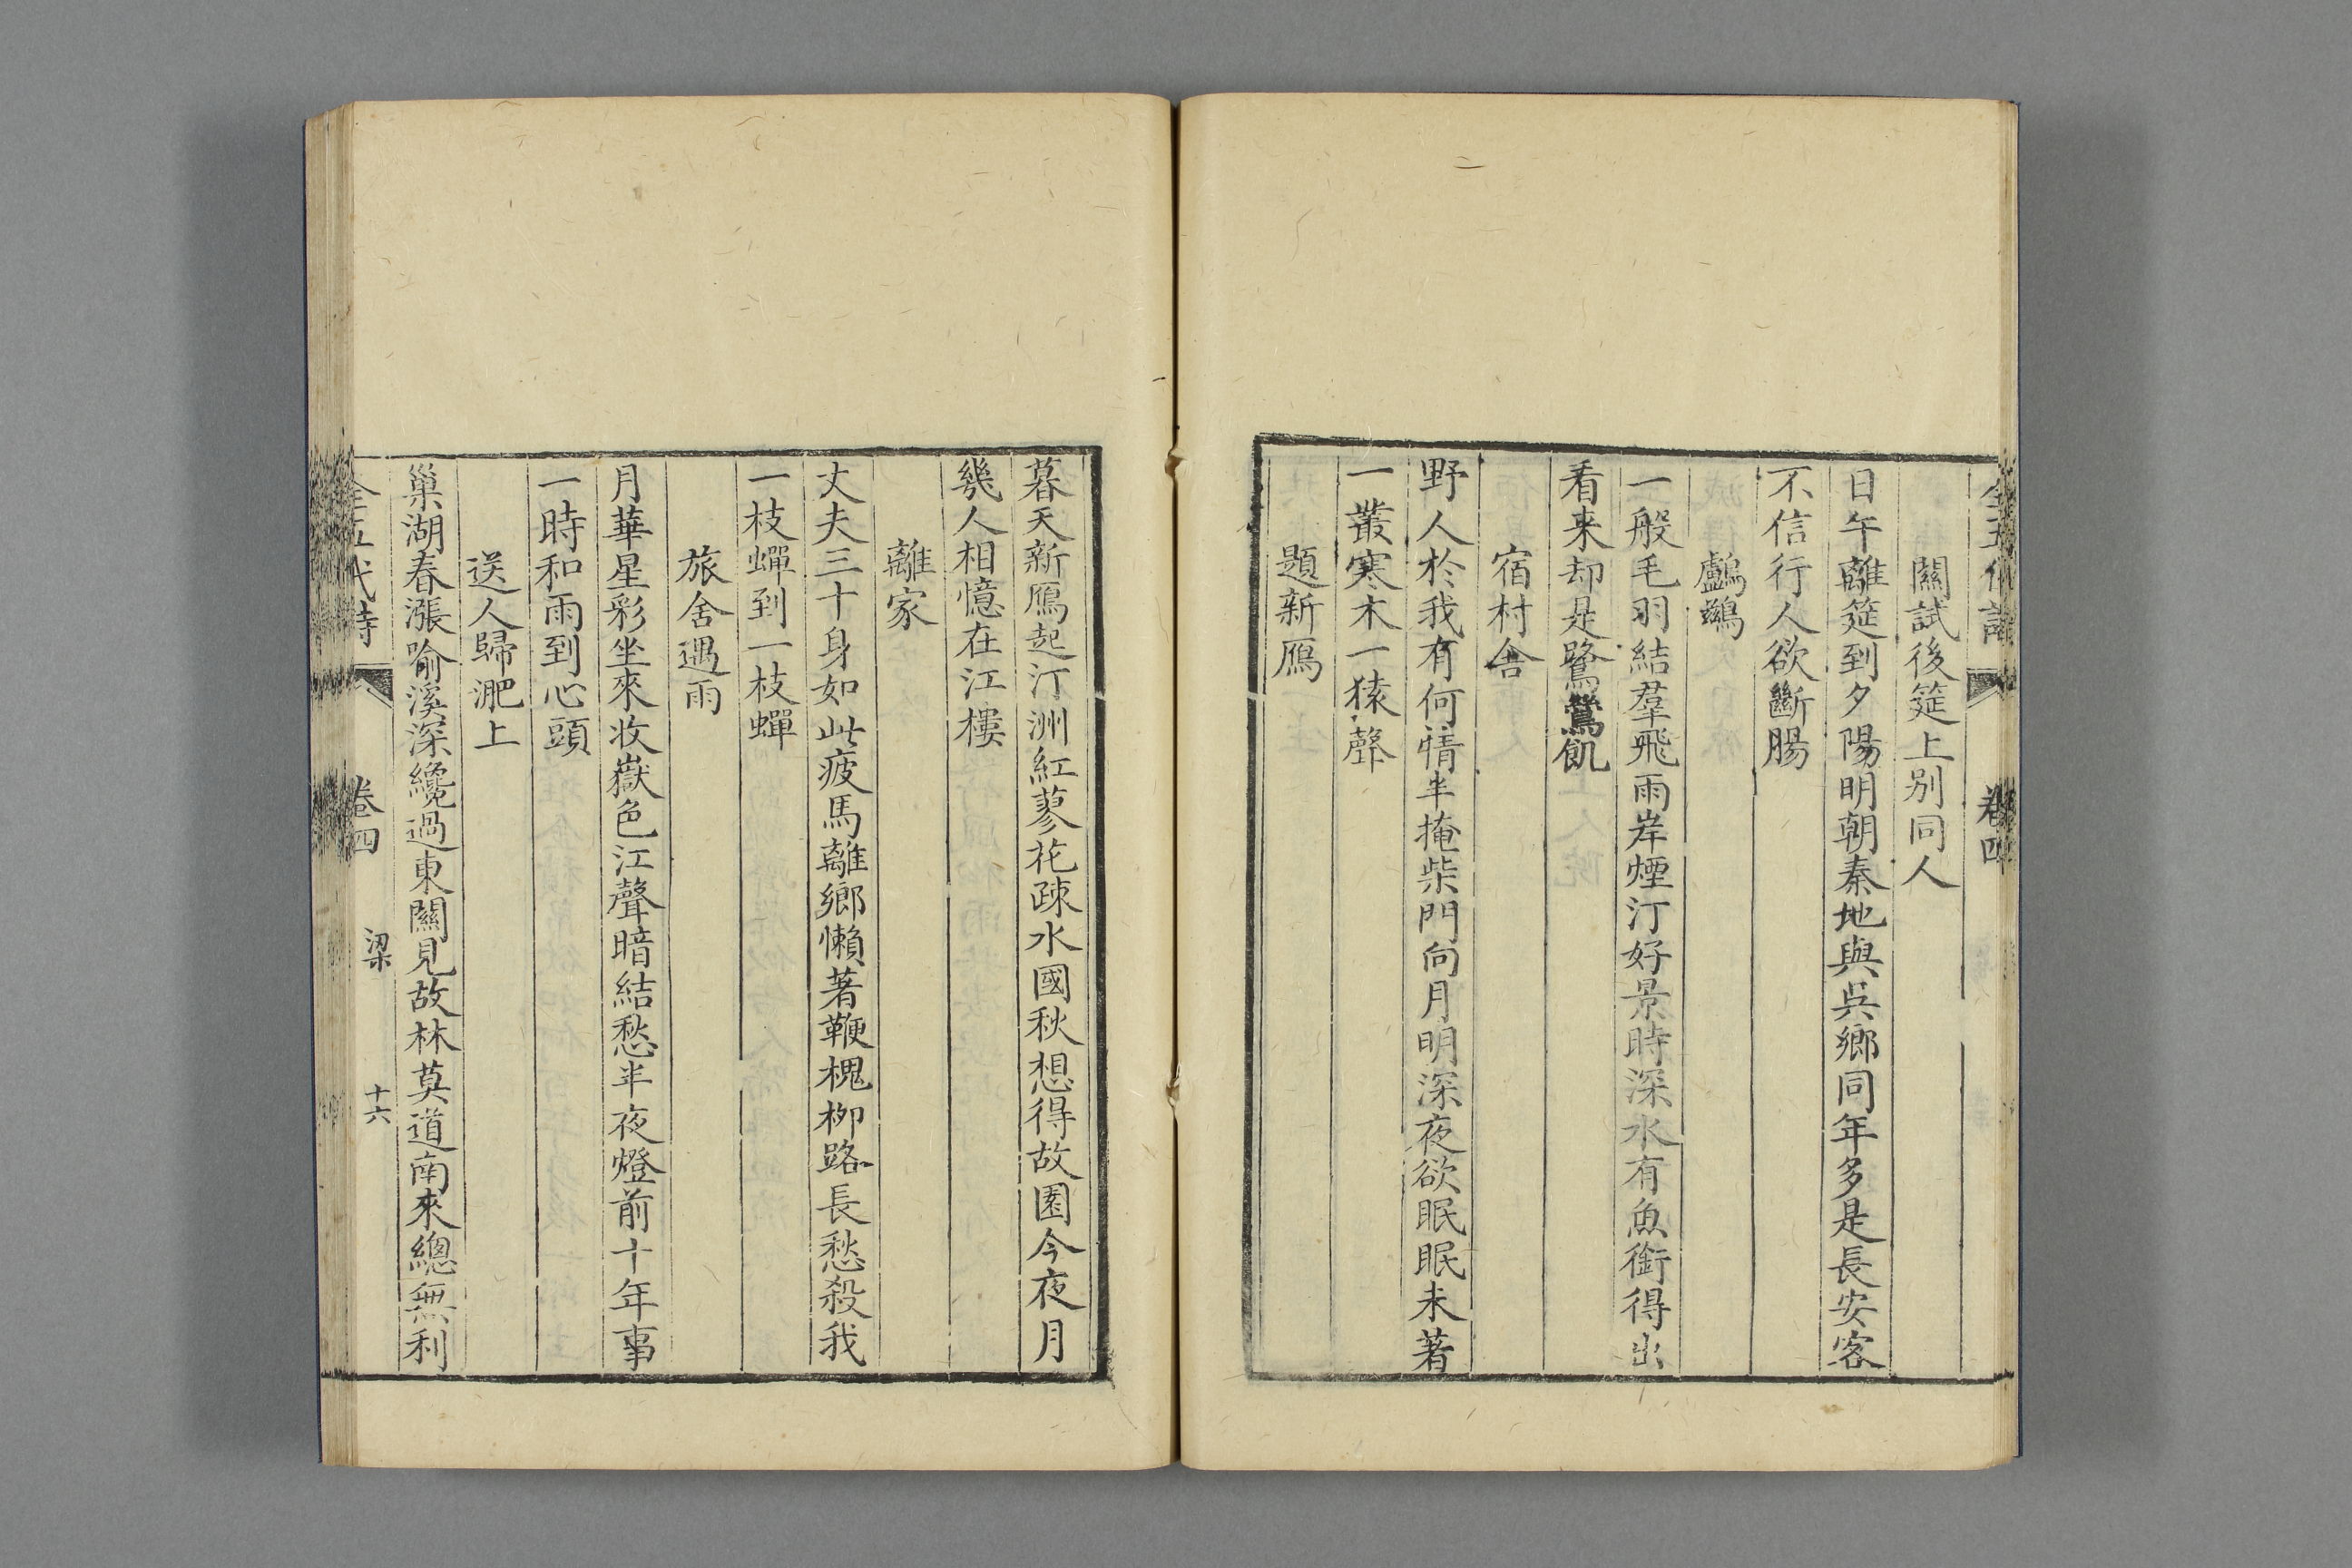 全五代詩 卷四
關試後筵上别同人
日午離筵到夕陽明朝秦地與吳鄉同年多是長安客
不信行人欲斷腸
鸕鷀
一般毛羽結羣飛雨岸煙汀好景時深水有魚銜得出
看来却是鷺鶿飢
宿村舍
野人於我有何情半掩柴門向月明深夜欲眠眠未著
一叢寒木一猿聲
題新鴈
暮天新鴈起汀洲紅蓼花疎水國秋想得故園今夜月
幾人相憶在江樓
離家
丈夫三十身如此疲馬離鄉懶著鞭槐柳路長愁殺我
一枝蟬到一枝蟬
旅舍遇雨
月華星彩坐來收嶽色江聲暗結愁半夜燈前十年事
一時和雨到心頭
送人歸淝上
巢湖春漲喻溪深纔過東關見故林莫道南來總無利
全五代詩 卷四 梁 十六